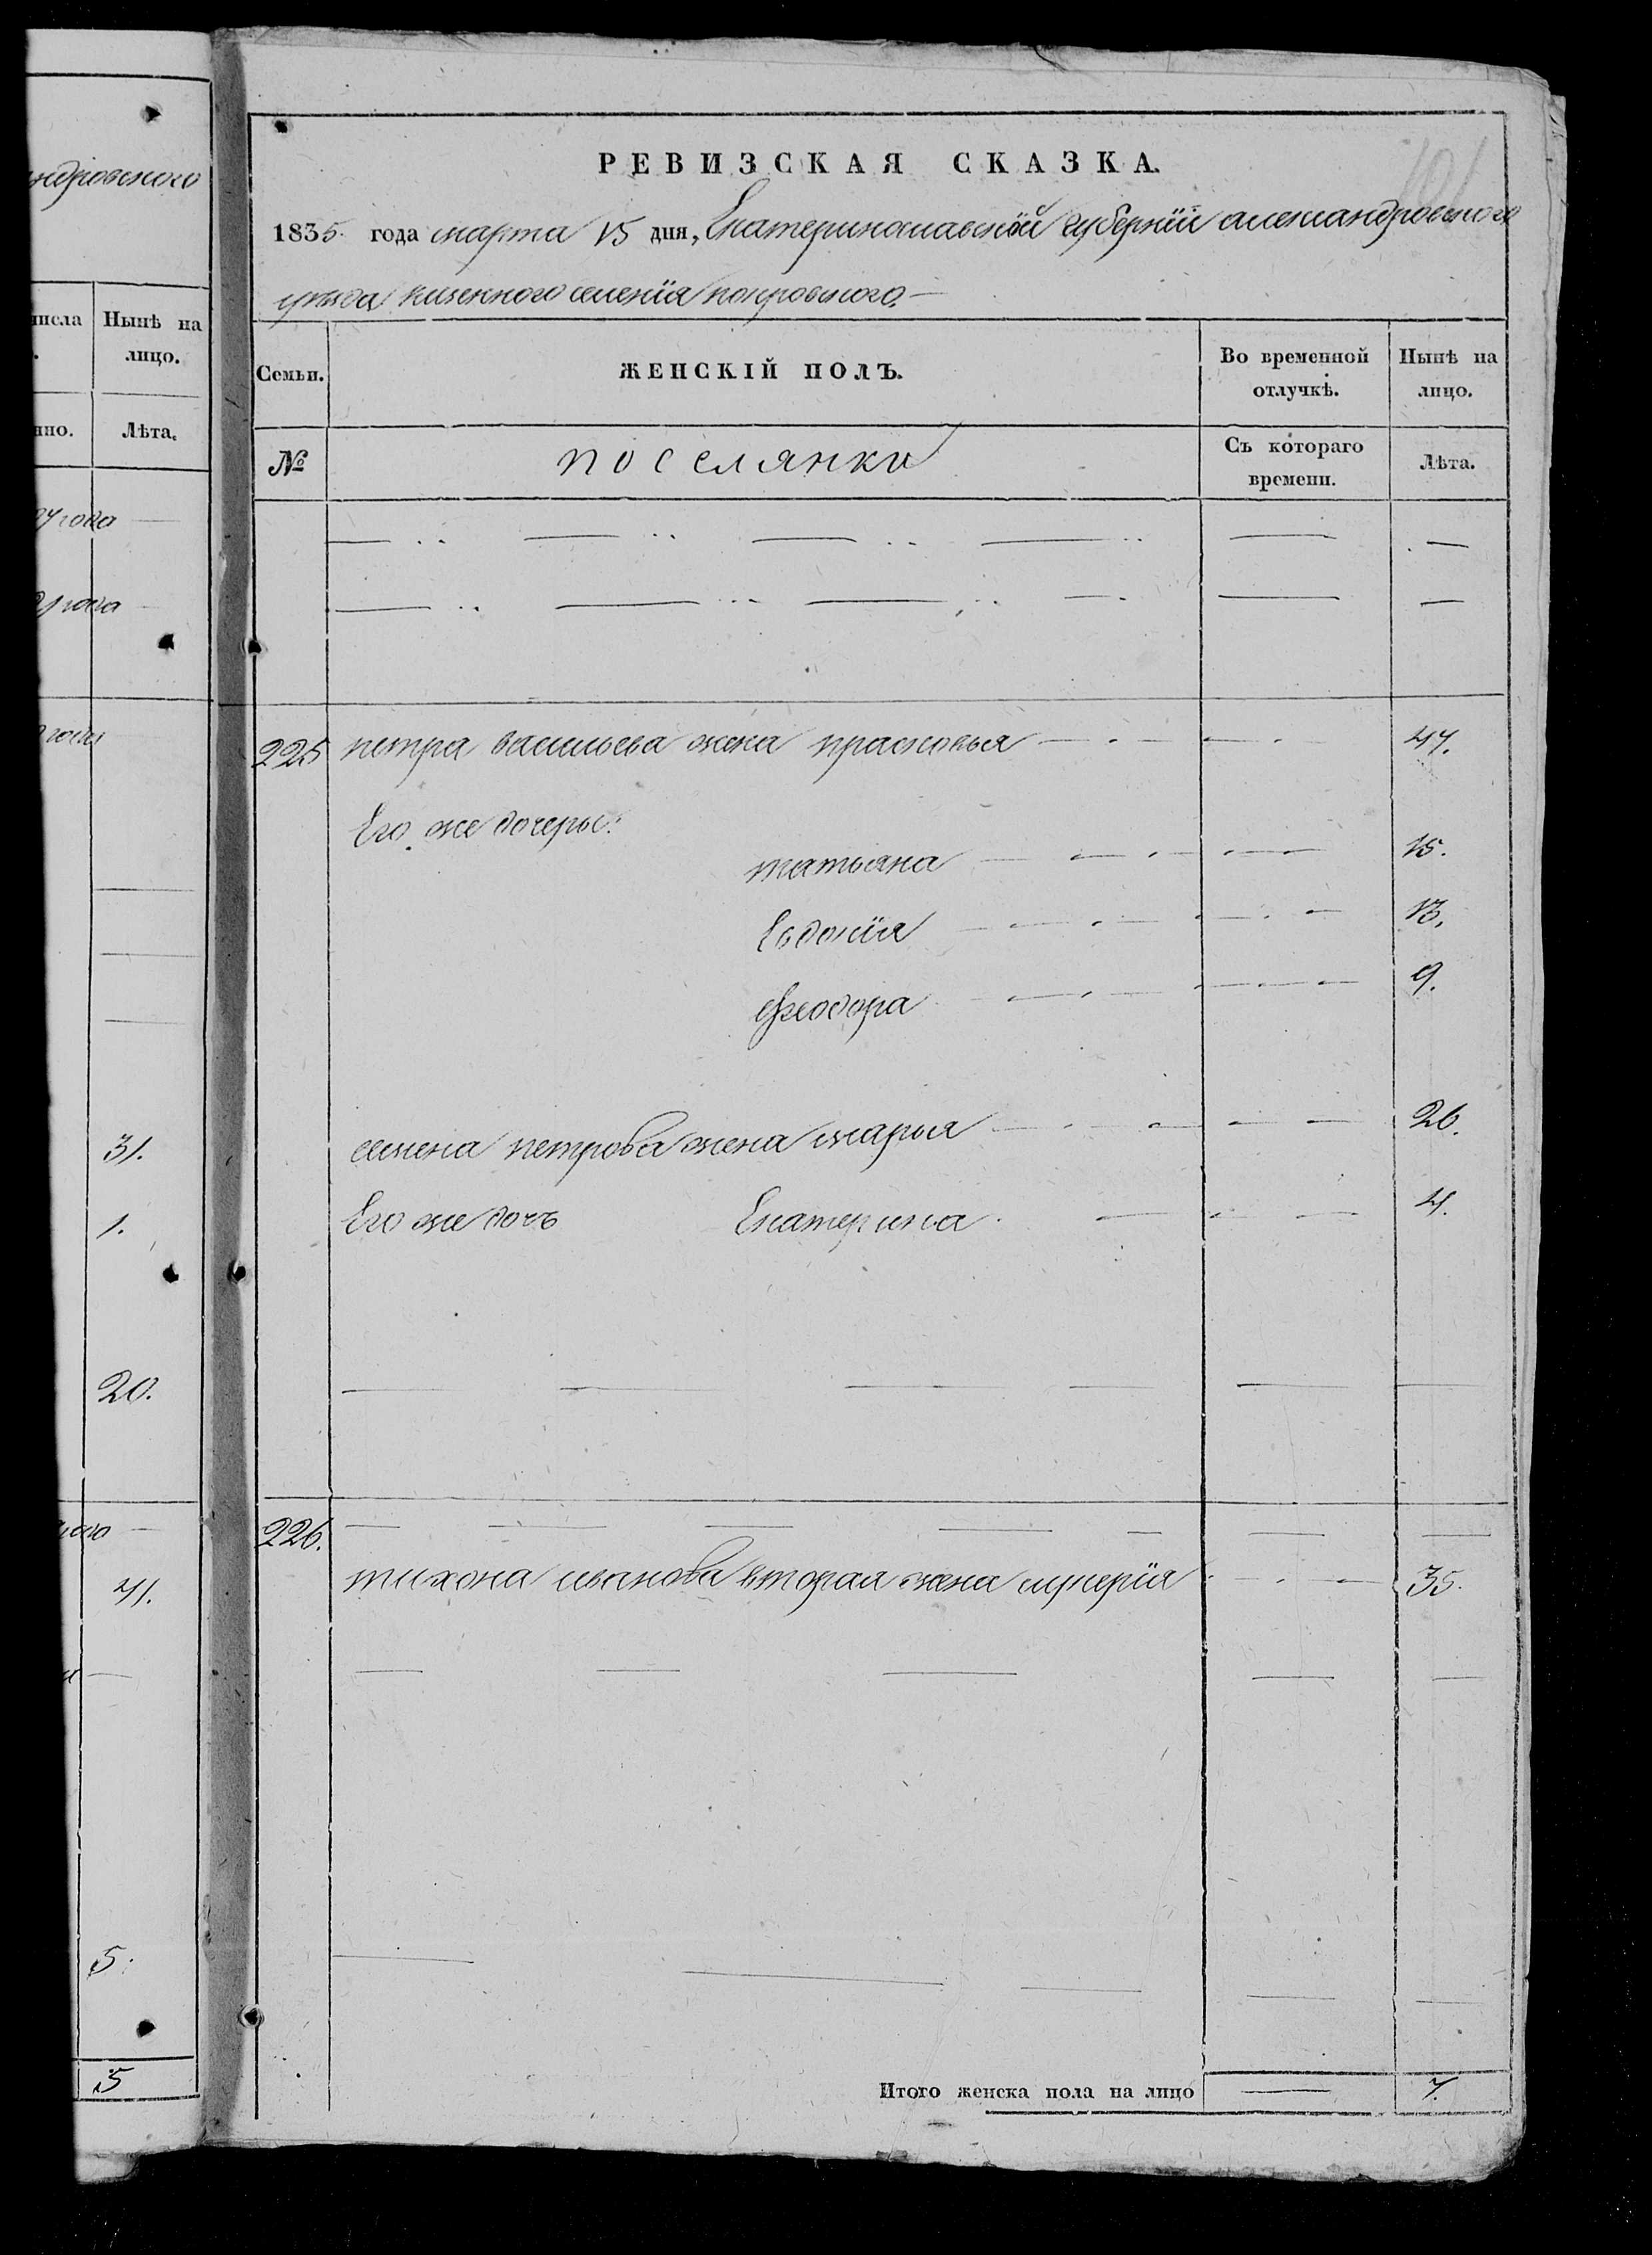 ндровского
числа
Нынѣ на
лицо.
Лѣта.
года
31.
1.
20.
41.
5.
5
РЕВИЗСКАЯ СКАЗКА.
1835 года марта 15 дня, Екатеринославской губернїи александровского
уезда казенного селенїя покровского.
Семьи.
ЖЕНСКІЙ ПОЛЪ.
Во временной
отлучкѣ.
Нынѣ на
лицо.
№
поселянки
Съ котораго
времени.
Лѣта.
225 петра васильева жена прасковья 47.
Его же дочеры:
татьяна 15.
Евдокїя 13.
Феодора 9.
семена петрова жена марья 26.
Его же дочь Екатерина 4.
226.
тихона иванова вторая жена лукерїя 35.
Итого женска пола на лицо 7.